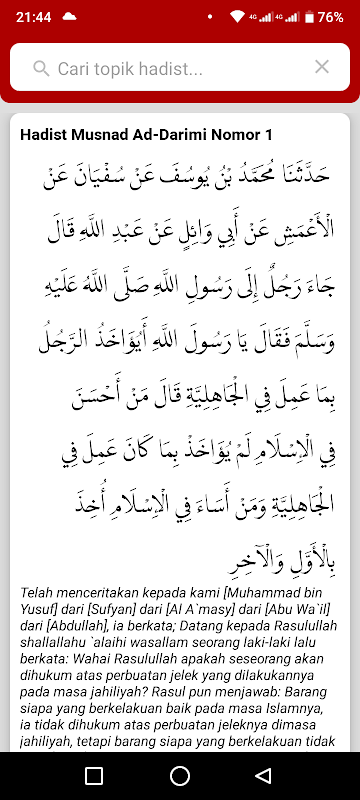 21:44
4G 4G 76%
Cari topik hadist...
Hadist Musnad Ad-Darimi Nomor 1
حَدَّثَنَا مُحَمَّدُ بْنُ يُوسُفَ عَنْ سُفْيَانَ عَنْ
الْأَعْمَشِ عَنْ أَبِي وَائِلٍ عَنْ عَبْدِ اللَّهِ قَالَ
جَاءَ رَجُلٌ إِلَى رَسُولِ اللَّهِ صَلَّى اللَّهُ عَلَيْهِ
وَسَلَّمَ فَقَالَ يَا رَسُولَ اللَّهِ أَيُؤَاخَذُ الرَّجُلُ
بِمَا عَمِلَ فِي الْجَاهِلِيَّةِ قَالَ مَنْ أَحْسَنَ
فِي الْإِسْلَامِ لَمْ يُؤَاخَذْ بِمَا كَانَ عَمِلَ فِي
الْجَاهِلِيَّةِ وَمَنْ أَسَاءَ فِي الْإِسْلَامِ أُخِذَ
بِالْأَوَّلِ وَالْآخِرِ
Telah menceritakan kepada kami [Muhammad bin
Yusuf] dari [Sufyan] dari [Al A`masy] dari [Abu Wa`il]
dari [Abdullah], ia berkata; Datang kepada Rasulullah
shallallahu `alaihi wasallam seorang laki-laki lalu
berkata: Wahai Rasulullah apakah seseorang akan
dihukum atas perbuatan jelek yang dilakukannya
pada masa jahiliyah? Rasul pun menjawab: Barang
siapa yang berkelakuan baik pada masa Islamnya,
ia tidak dihukum atas perbuatan jeleknya dimasa
jahiliyah, tetapi barang siapa yang berkelakuan tidak